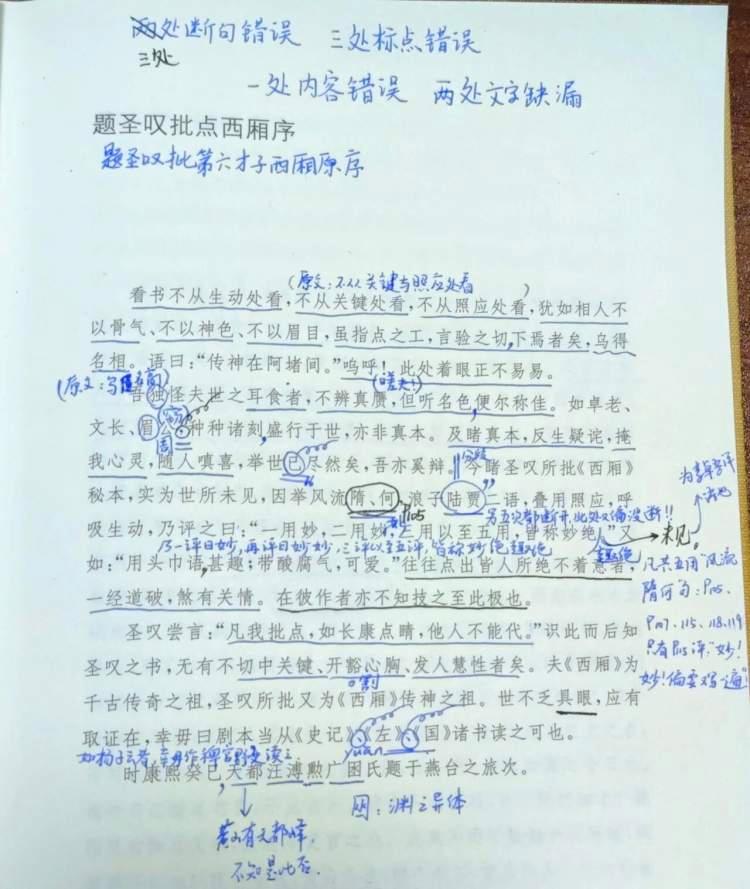 两处断句错误 三处标点错误
三处
一处内容错误 两处文字缺漏
题圣叹批点西厢序
题圣叹批第六才子西厢原序
(原文:不从关键与照应处看)
看书不从生动处看,不从关键处看,不从照应处看,犹如相人不
以骨气、不以神色、不以眉目,虽指点之工,言验之切,下焉者矣,乌得
名相。语曰:“传神在阿堵间。”呜呼!此处着眼正不易易。
(嗟夫!)
吾独怪夫世之耳食者,不辨真赝,但听名色,便尔称佳。如卓老、
文长、眉公种种诸刻盛行于世,亦非真本。及睹真本,反生疑诧,掩
我心灵,随人嗔喜,举世已尽然矣,吾亦奚辩。今睹圣叹所批《西厢》
分段
秘本,实为世所未见,因举风流隋、何,浪子陆贾二语,叠用照应,呼
P105
另五次都断开,此处又偏没断!!
吸生动,乃评之曰:“一用妙,二用妙,三用以至五用,皆称妙绝。”又
乃一评曰妙,再评曰妙妙,三评以至五评,皆称妙绝趣绝
趣绝
未见
如:“用头巾语,甚趣;带酸腐气,可爱。”往往点出皆人所绝不着意者,
一经道破,煞有关情。在彼作者亦不知技之至此极也。
圣叹尝言:“凡我批点,如长康点睛,他人不能代。”识此而后知
圣叹之书,无有不切中关键、开豁心胸、发人慧性者矣。夫《西厢》为
千古传奇之祖,圣叹所批又为《西厢》传神之祖。世不乏具眼,应有
取证在,幸毋曰剧本当从《史记》《左》《国》诸书读之可也。
yuān
时康熙癸巳天都汪溥勲广囦氏题于燕台之旅次。
囦:渊之异体
黄山有天都峰
不知是此否.
凡共五用“风流
隋何”句:P105、
P107、115、118、119
只有P115评“妙!
妙!偏要写一遍!”